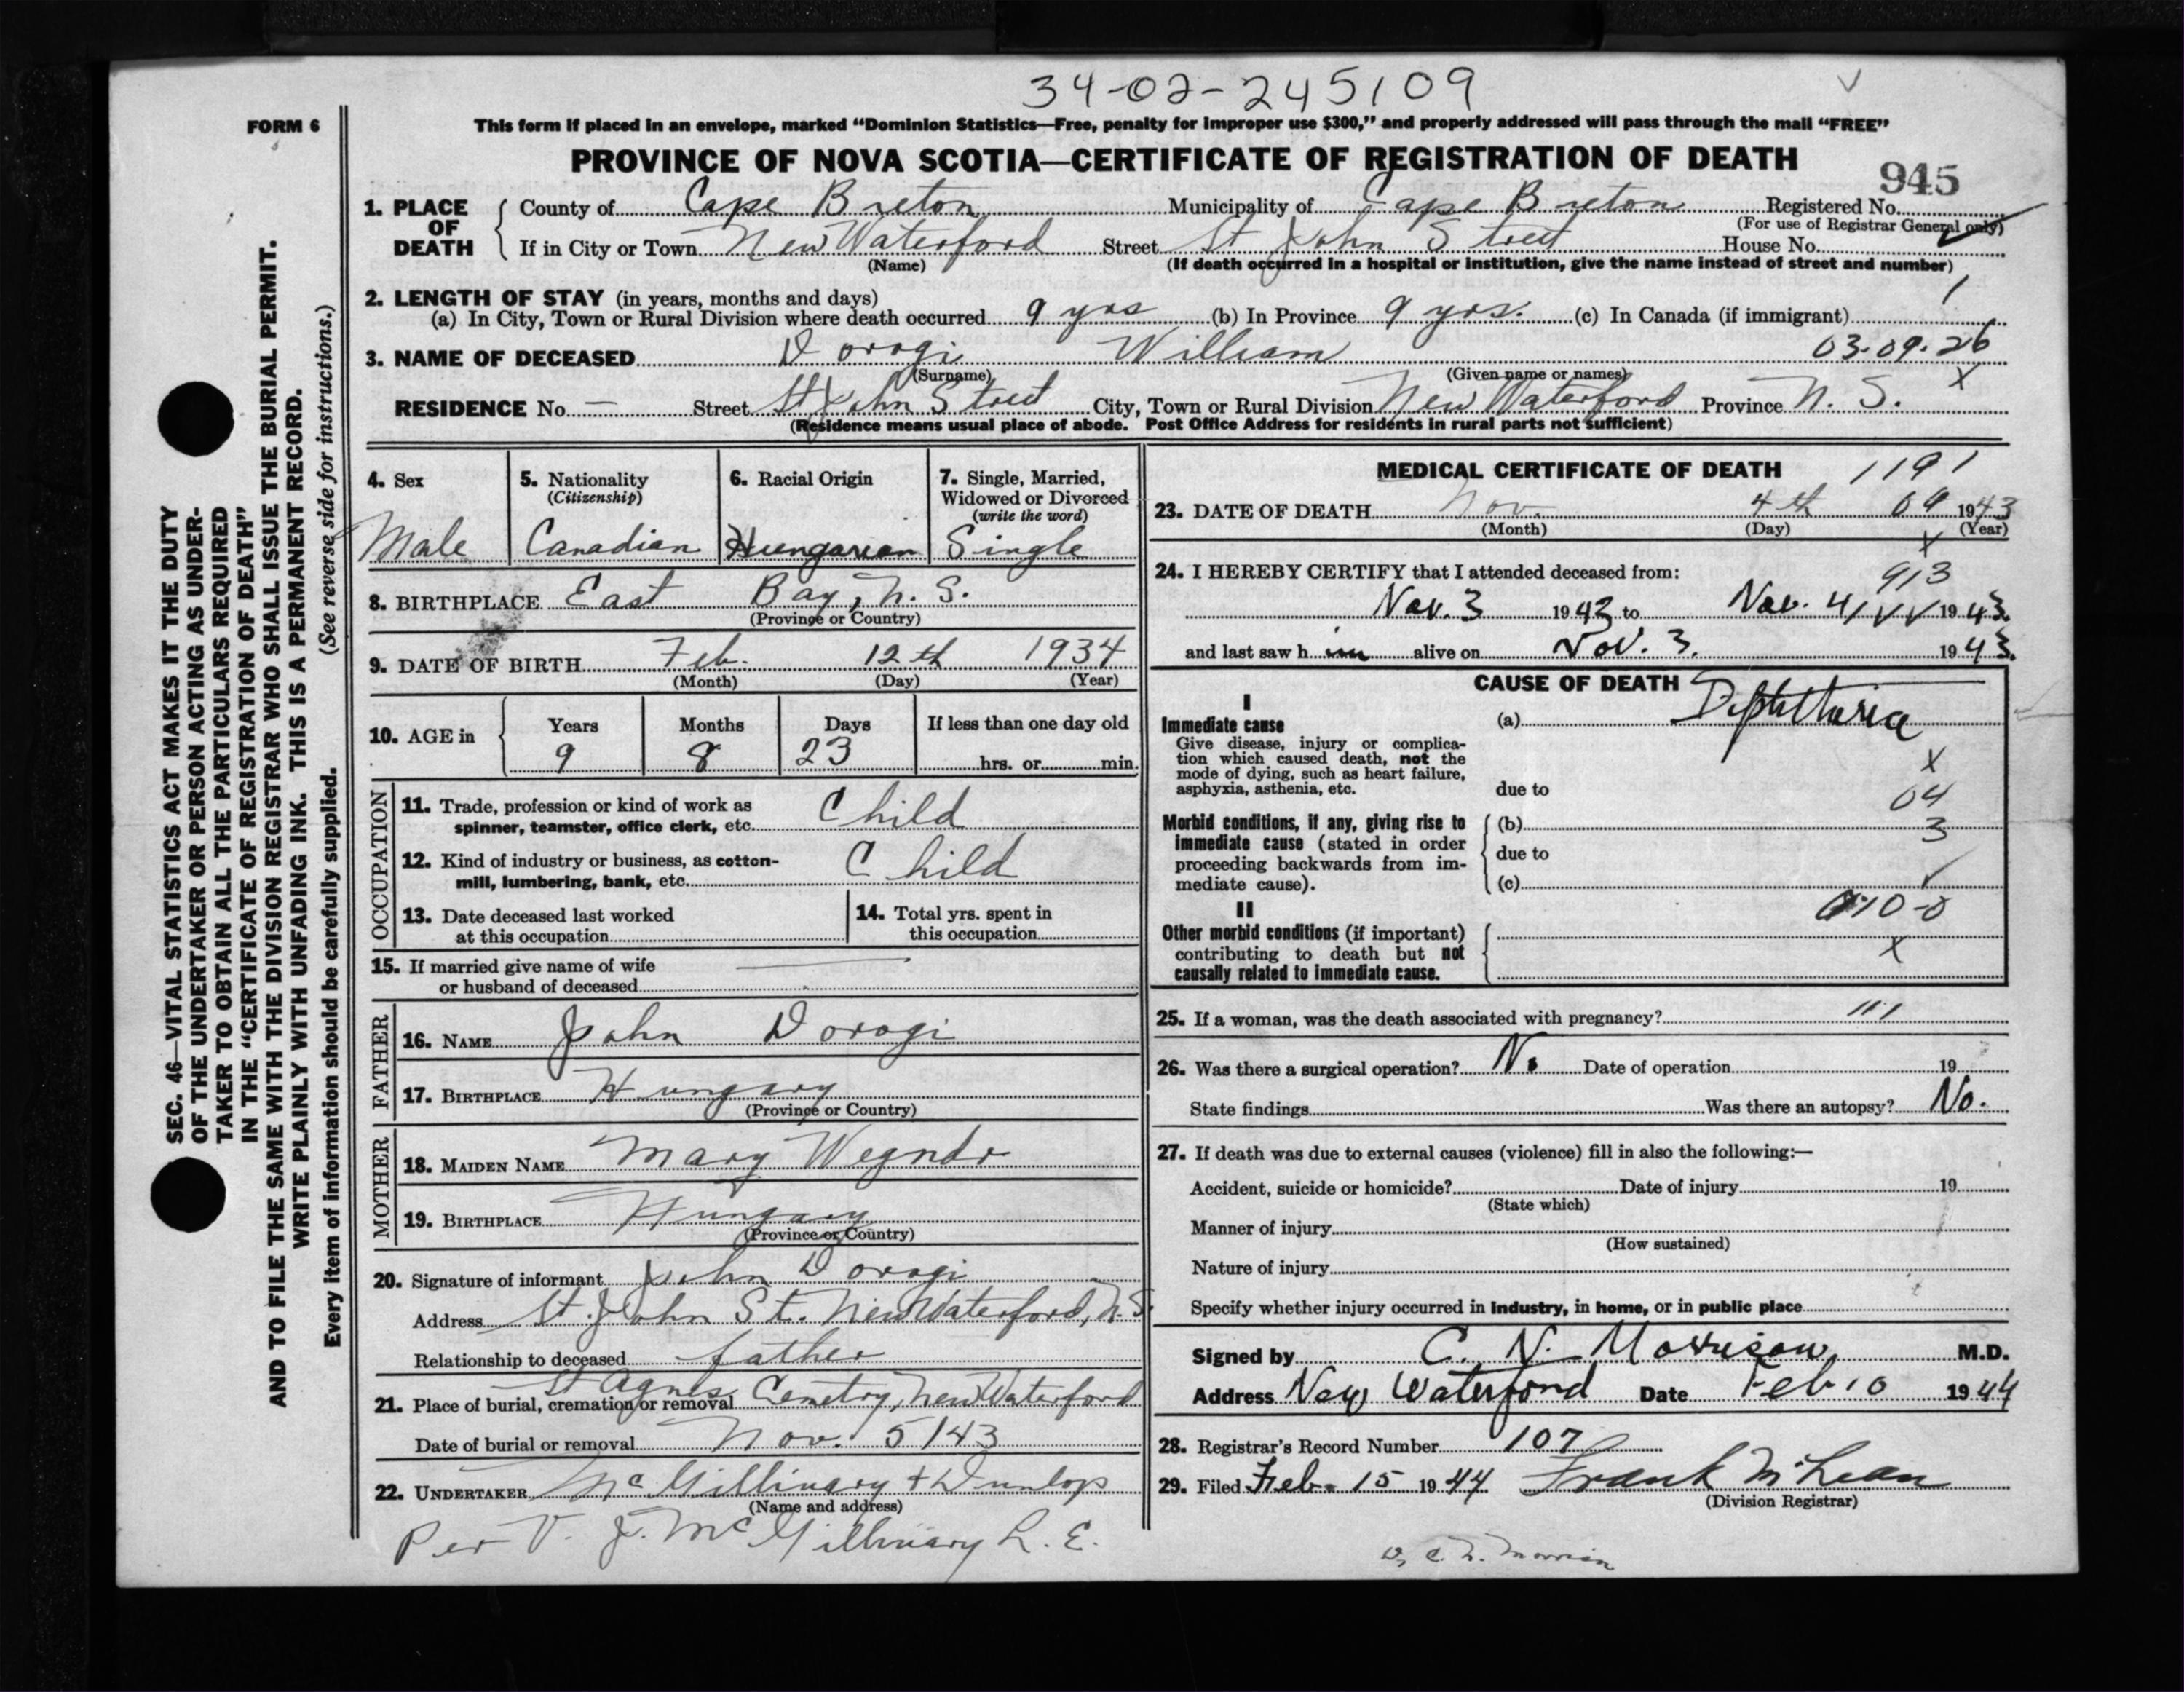 34-02-245109
FORM 6
This form if placed in an envelope, marked “Dominion Statistics—Free, penalty for improper use $300,” and properly addressed will pass through the mail “FREE”
PROVINCE OF NOVA SCOTIA—CERTIFICATE OF REGISTRATION OF DEATH
945
1. PLACE OF DEATH { County of Cape Breton Municipality of Cape Breton Registered No.
(For use of Registrar General only)
If in City or Town New Waterford Street St John Street House No.
(Name) (If death occurred in a hospital or institution, give the name instead of street and number)
2. LENGTH OF STAY (in years, months and days)
(a) In City, Town or Rural Division where death occurred 9 yrs (b) In Province 9 yrs. (c) In Canada (if immigrant)
3. NAME OF DECEASED Dorogi William 03.09.26
(Surname) (Given name or names) X
RESIDENCE No. — Street St John Street City, Town or Rural Division New Waterford Province N. S.
(Residence means usual place of abode. Post Office Address for residents in rural parts not sufficient)
4. Sex 5. Nationality (Citizenship) 6. Racial Origin 7. Single, Married, Widowed or Divorced (write the word)
Male Canadian Hungarian Single
8. BIRTHPLACE East Bay, N. S.
(Province or Country)
9. DATE OF BIRTH Feb. 12th 1934
(Month) (Day) (Year)
10. AGE in { Years Months Days If less than one day old
9 8 23 hrs. or min.
OCCUPATION
11. Trade, profession or kind of work as
spinner, teamster, office clerk, etc. Child
12. Kind of industry or business, as cotton-
mill, lumbering, bank, etc. Child
13. Date deceased last worked
at this occupation
14. Total yrs. spent in
this occupation
15. If married give name of wife
or husband of deceased
FATHER
16. NAME John Dorogi
17. BIRTHPLACE Hungary
(Province or Country)
MOTHER
18. MAIDEN NAME Mary Wegndr
19. BIRTHPLACE Hungary
(Province or Country)
20. Signature of informant John Dorogi
Address St. John St. New Waterford, N.S.
Relationship to deceased father
21. Place of burial, cremation or removal St Agnes Cemetry, New Waterford
Date of burial or removal Nov. 5/43
22. UNDERTAKER McGillivary + Dunlop
(Name and address)
Per V. J. McGillivary L. E.
MEDICAL CERTIFICATE OF DEATH 1191
23. DATE OF DEATH Nov. 4th 09 1943
(Month) (Day) (Year)
X
24. I HEREBY CERTIFY that I attended deceased from:
913
Nov. 3 1943 to Nov. 4 1943.
and last saw h im alive on Nov. 3. 1943.
CAUSE OF DEATH
I
Immediate cause
Give disease, injury or complica-
tion which caused death, not the
mode of dying, such as heart failure,
asphyxia, asthenia, etc.
(a) Diphtheria
X
due to
04
Morbid conditions, if any, giving rise to
immediate cause (stated in order
proceeding backwards from im-
mediate cause).
(b)
3
due to
(c)
010-0
II
Other morbid conditions (if important)
contributing to death but not
causally related to immediate cause.
X
25. If a woman, was the death associated with pregnancy?
26. Was there a surgical operation? No Date of operation 19
State findings Was there an autopsy? No.
27. If death was due to external causes (violence) fill in also the following:—
Accident, suicide or homicide? Date of injury 19
(State which)
Manner of injury
(How sustained)
Nature of injury
Specify whether injury occurred in industry, in home, or in public place
Signed by C. N. Morrison, M.D.
Address New Waterford Date Feb 10 1944
28. Registrar's Record Number 107
29. Filed Feb. 15 1944 Frank McLean
(Division Registrar)
SEC. 46—VITAL STATISTICS ACT MAKES IT THE DUTY
OF THE UNDERTAKER OR PERSON ACTING AS UNDER-
TAKER TO OBTAIN ALL THE PARTICULARS REQUIRED
IN THE “CERTIFICATE OF REGISTRATION OF DEATH”
AND TO FILE THE SAME WITH THE DIVISION REGISTRAR WHO SHALL ISSUE THE BURIAL PERMIT.
WRITE PLAINLY WITH UNFADING INK. THIS IS A PERMANENT RECORD.
Every item of information should be carefully supplied. (See reverse side for instructions.)